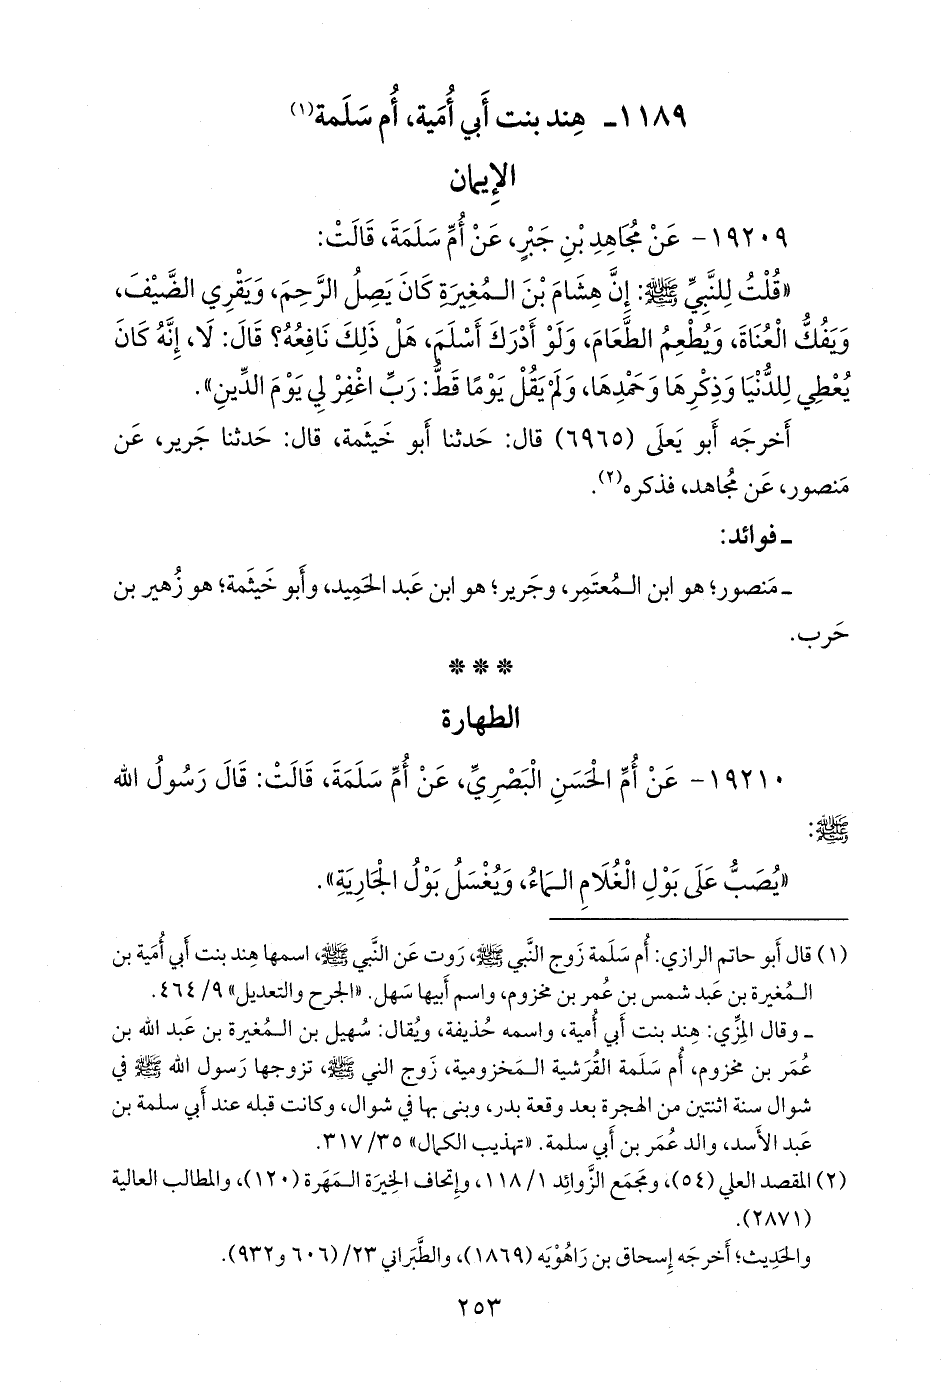 ١١٨٩ـ هِند بنت أَبي أُمَية، أُم سَلَمة(١)
الإِيمان
١٩٢٠٩- عَنْ مُجَاهِدِ بْنِ جَبْرٍ، عَنْ أُمِّ سَلَمَةَ، قَالَتْ:
«قُلْتُ لِلنَّبِيِّ ﷺ: إِنَّ هِشَامَ بْنَ الـمُغِيرَةِ كَانَ يَصِلُ الرَّحِمَ، وَيَقْرِي الضَّيْفَ،
وَيَفُكُّ الْعُنَاةَ، وَيُطْعِمُ الطَّعَامَ، وَلَوْ أَدْرَكَ أَسْلَمَ، هَلْ ذَلِكَ نَافِعُهُ؟ قَالَ: لَا، إِنَّهُ كَانَ
يُعْطِي لِلدُّنْيَا وَذِكْرِهَا وَحَمْدِهَا، وَلَمْ يَقُلْ يَوْمًا قَطُّ: رَبِّ اغْفِرْ لِي يَوْمَ الدِّينِ».
أَخرجَه أَبو يَعلَى (٦٩٦٥) قال: حَدثنا أَبو خَيثَمة، قال: حَدثنا جَرير، عَن
مَنصور، عَن مُجاهد، فذكره(٢).
ـ فوائد:
ـ مَنصور؛ هو ابن الـمُعتَمِر، وجَرير؛ هو ابن عَبد الحَمِيد، وأَبو خَيثَمة؛ هو زُهير بن
حَرب.
***
الطهارة
١٩٢١٠- عَنْ أُمِّ الْحَسَنِ الْبَصْرِيِّ، عَنْ أُمِّ سَلَمَةَ، قَالَتْ: قَالَ رَسُولُ الله
ﷺ:
«يُصَبُّ عَلَى بَوْلِ الْغُلَامِ الـمَاءُ، وَيُغْسَلُ بَوْلُ الْجَارِيَةِ».
(١) قال أَبو حاتم الرازي: أُم سَلَمة زَوج النَّبي ﷺ، رَوت عَن النَّبي ﷺ، اسمها هِند بنت أَبي أُمَية بن
الـمُغيرة بن عَبد شمس بن عُمر بن مخزوم، واسم أَبيها سَهل. «الجرح والتعديل» ٩/ ٤٦٤.
ـ وقال المِزِّي: هِند بنت أَبي أُمية، واسمه حُذيفة، ويُقال: سُهيل بن الـمُغيرة بن عَبد الله بن
عُمَر بن مخزوم، أُم سَلَمة القُرَشية الـمَخزومية، زَوج الني ﷺ، تزوجها رَسول الله ﷺ في
شوال سنة اثنتين من الهجرة بعد وقعة بدر، وبنى بها في شوال، وكانت قبله عند أَبي سلمة بن
عَبد الأَسد، والد عُمَر بن أَبي سلمة. «تهذيب الكمال» ٣٥/ ٣١٧.
(٢) المقصد العلي (٥٤)، ومَجمَع الزَّوائِد ١/ ١١٨، وإتحاف الخِيرَة الـمَهَرة (١٢٠)، والمطالب العالية
(٢٨٧١).
والحَدِيث؛ أَخرجَه إِسحاق بن رَاهُوْيَه (١٨٦٩)، والطَّبَراني ٢٣/ (٦٠٦ و٩٣٢).
٢٥٣